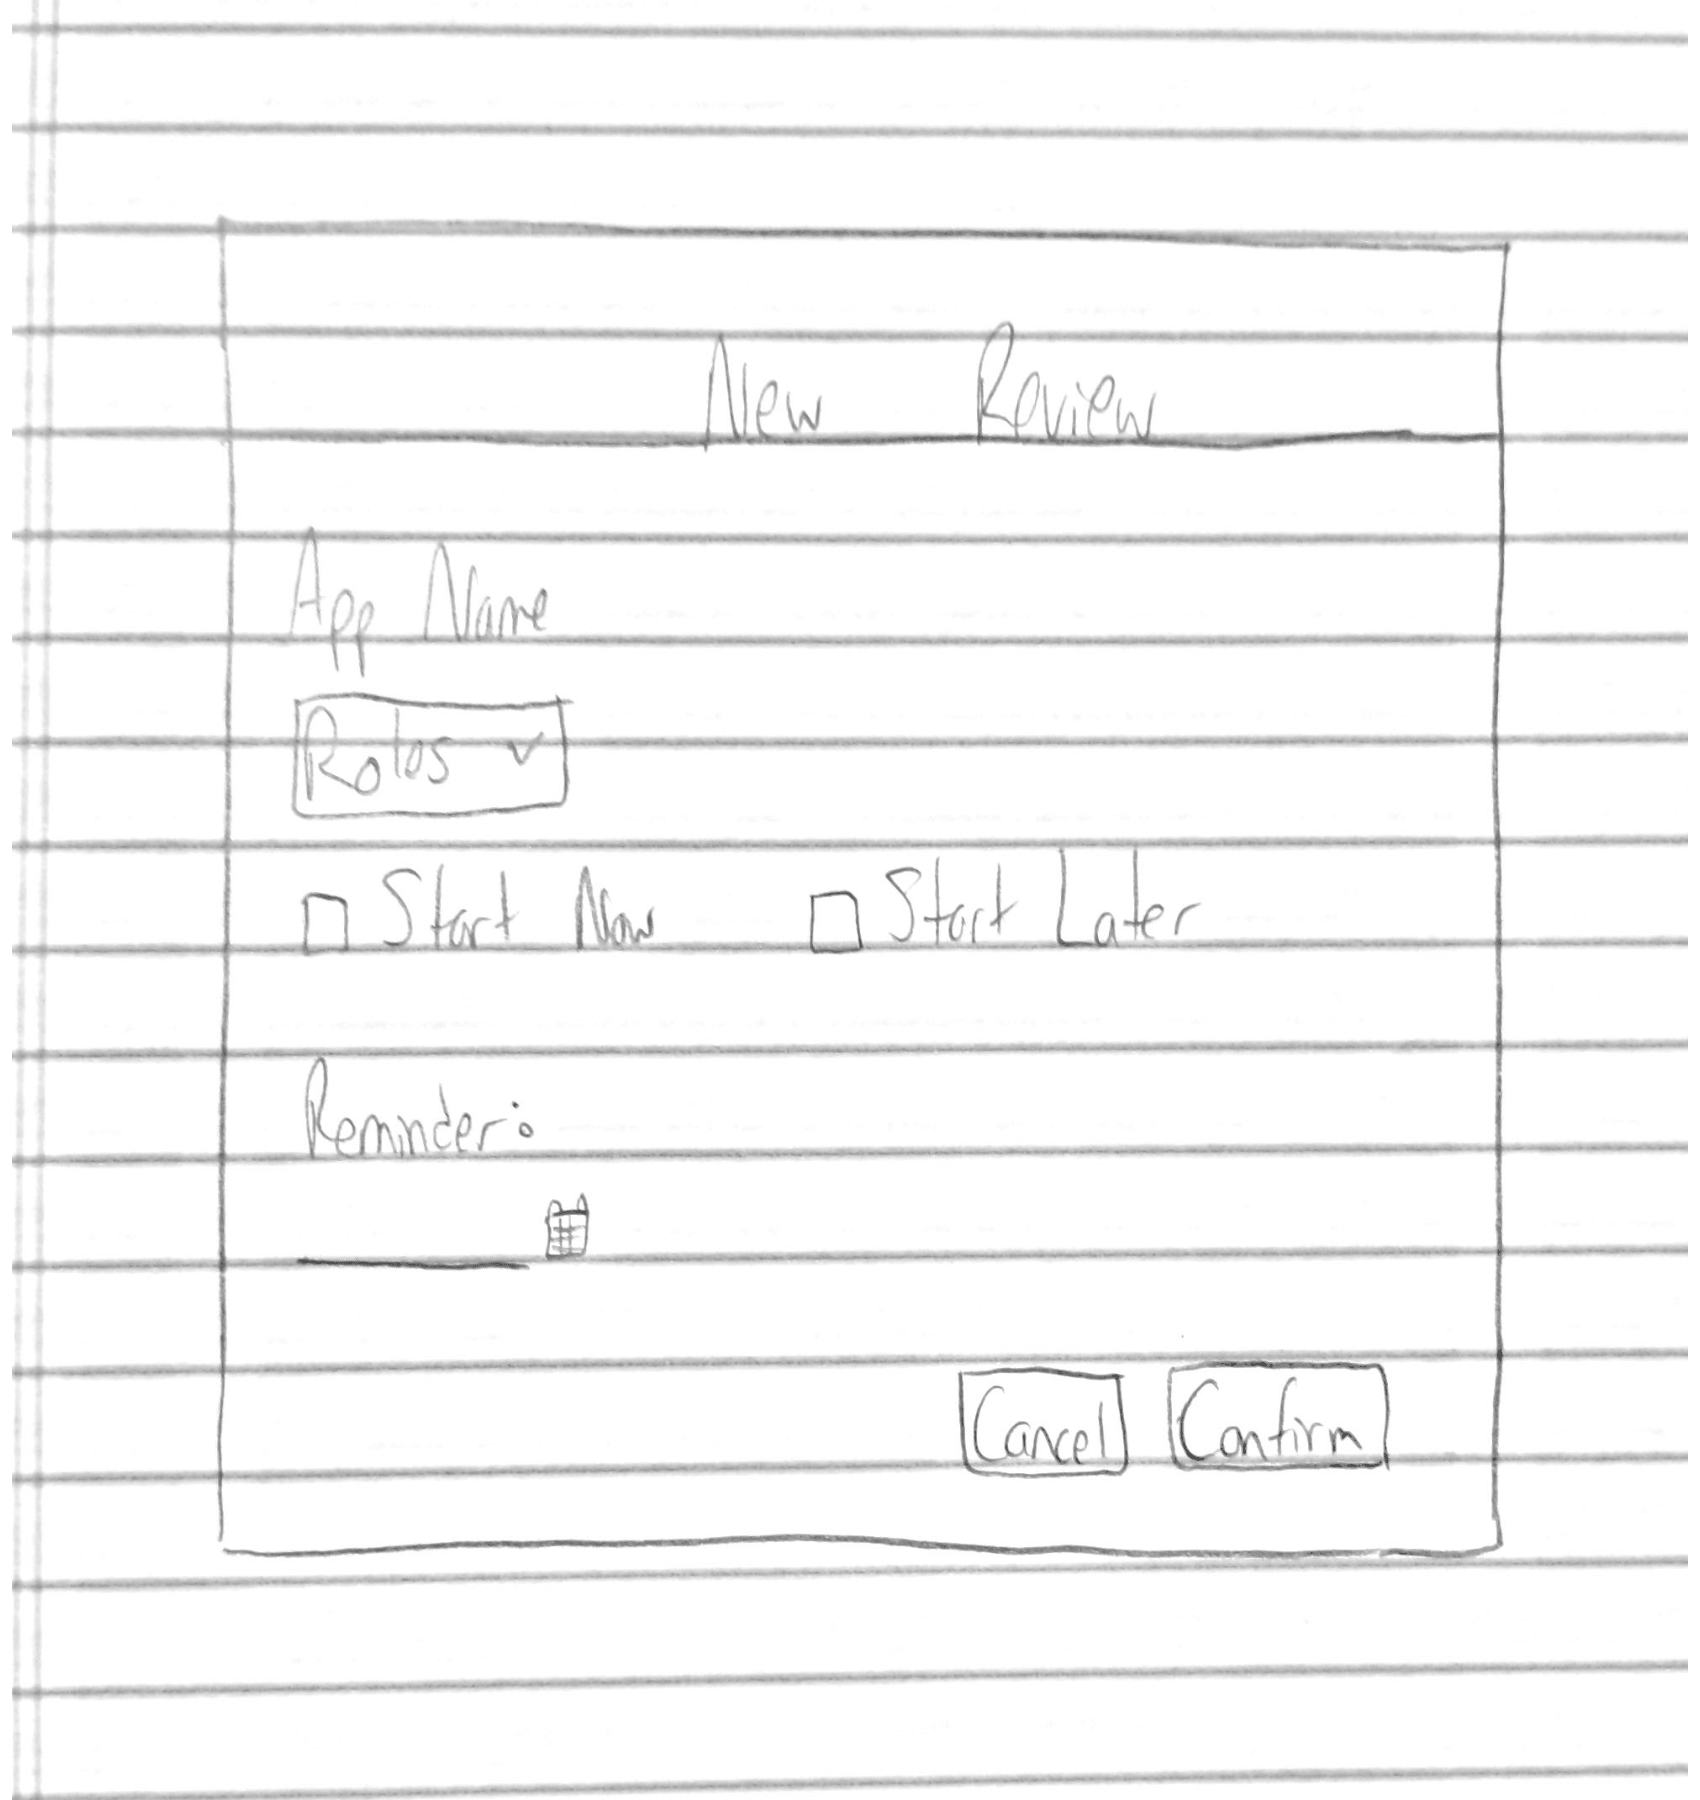 New Review
App Name
Roles
Start Now Start Later
Reminder:
Cancel Confirm